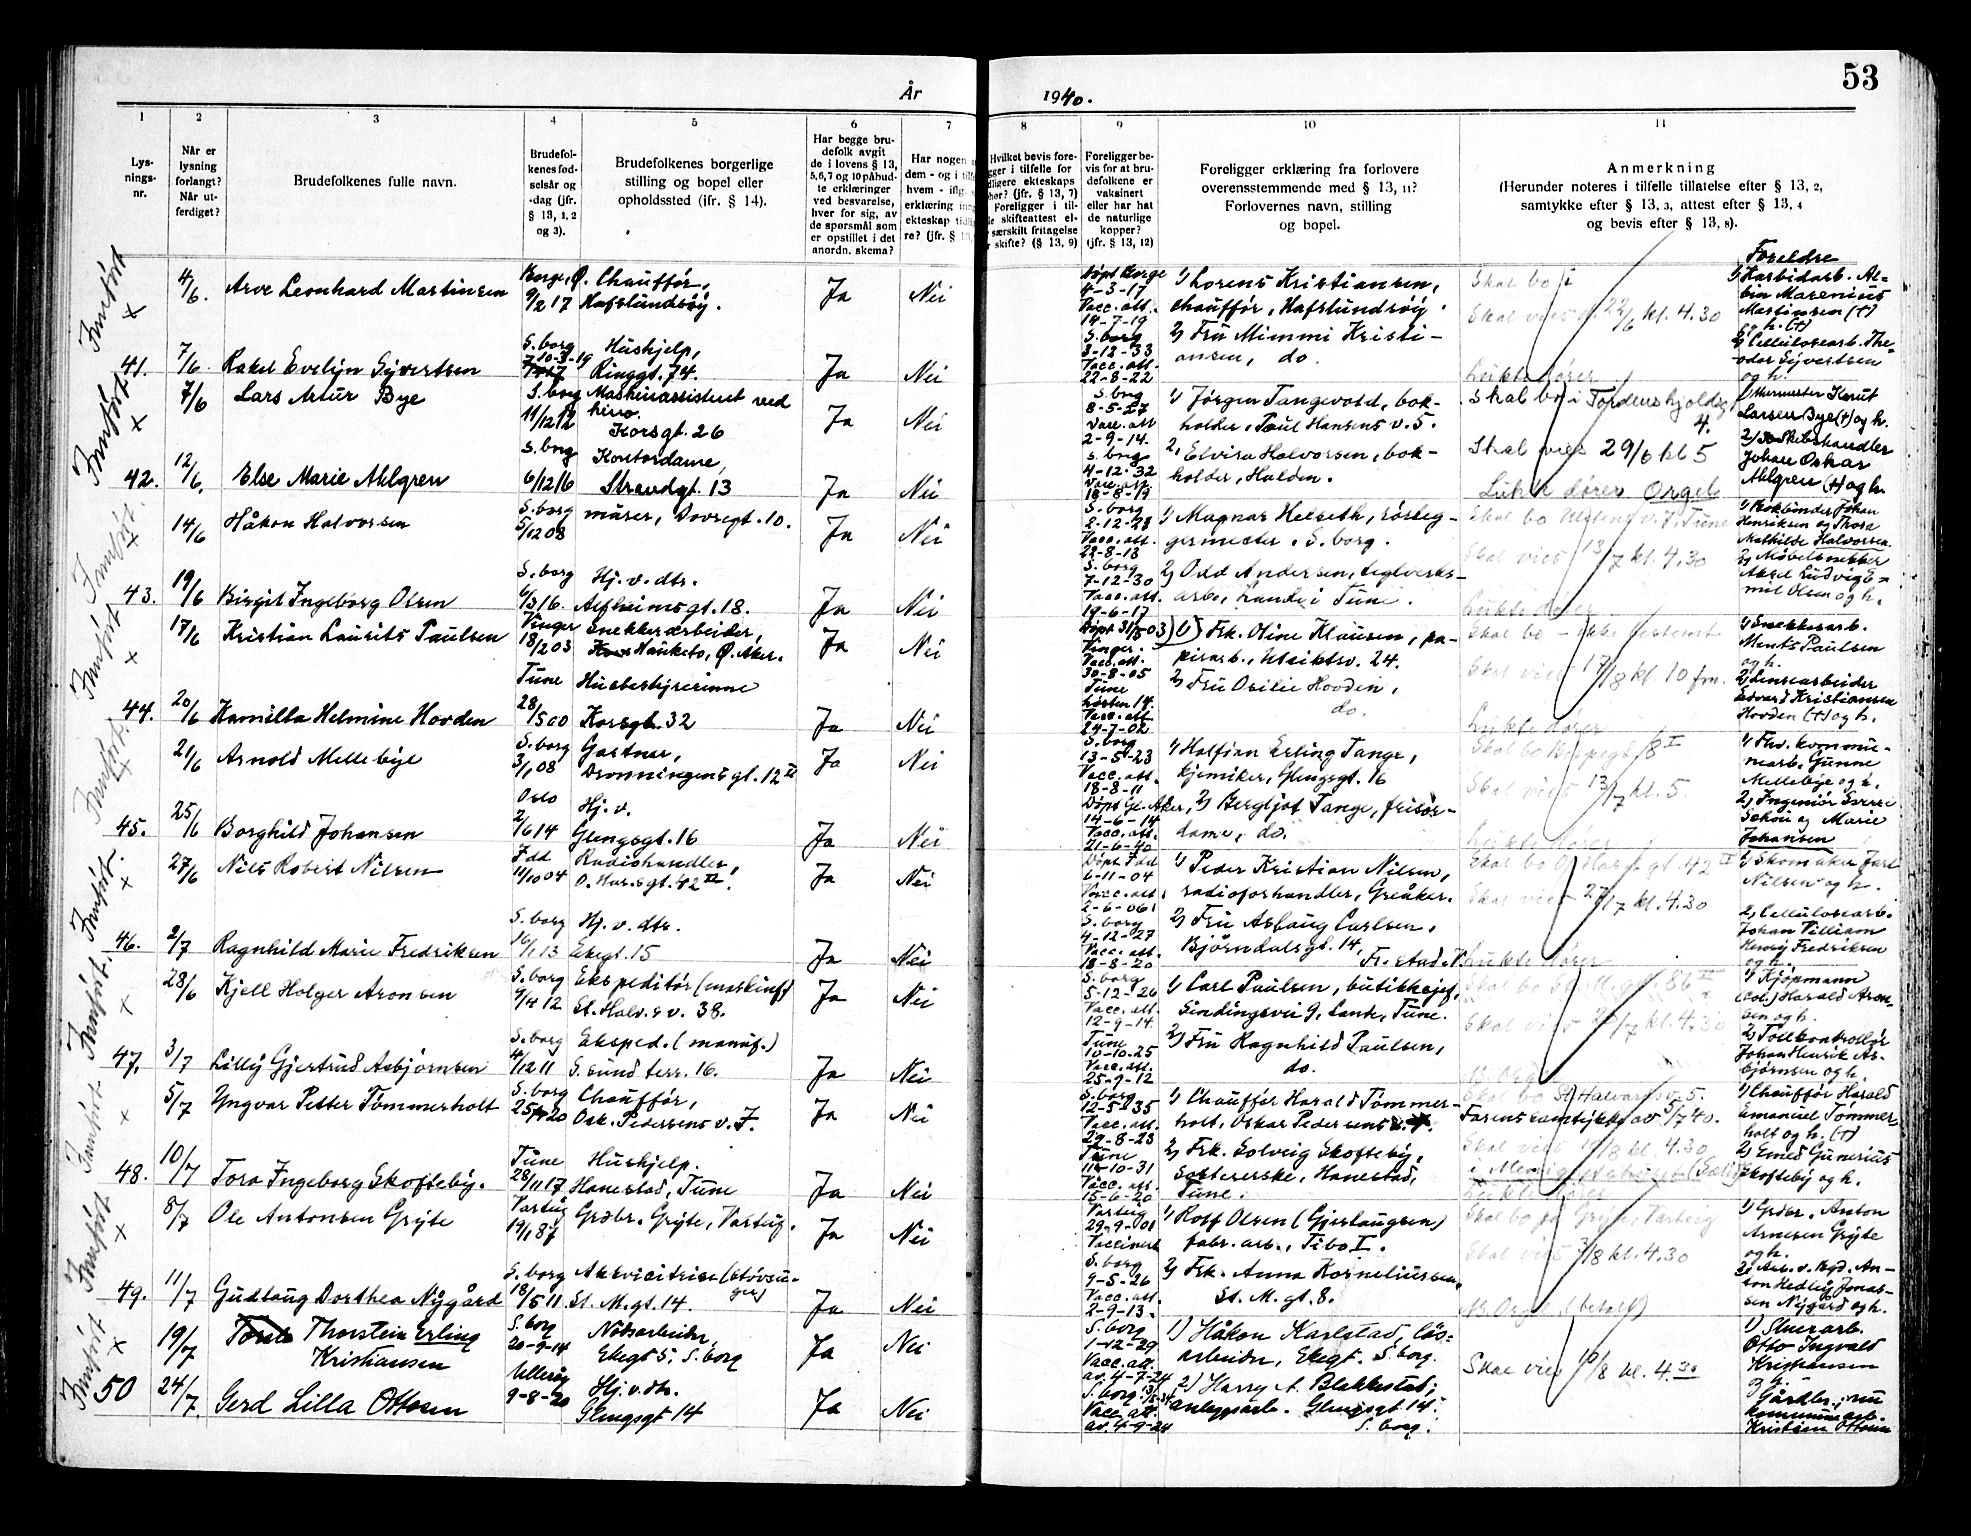 53
År 1940.
1 2 3 4 5 6 7 8 9 10 11
Lys-
nings-
nr.
Når er
lysning
forlangt?
Når ut-
ferdiget?
Brudefolkenes fulle navn.
Brudefol-
kenes fød-
selsår og
-dag (jfr.
§ 13, 1, 2
og 3).
Brudefolkenes borgerlige
stilling og bopel eller
opholdssted (ifr. § 14).
Har begge bru-
defolk avgit
de i lovens § 13,
5, 6, 7 og 10 påbud-
te erklæringer
ved besvarelse,
hver for sig, av
de spørsmål som
er opstillet i det
anordn. skema?
Har nogen
dem - og i
hvem - iflg.
erklæring
ekteskap
re? (jfr. § 13,
Hvilket bevis fore-
gger i tilfelle for
dligere ekteskaps
hør? (jfr. § 13, 7)
Foreligger i til-
le skifteattest el-
særskilt fritagelse
skifte? (§ 13, 9)
Foreligger be-
vis for at bru-
defolkene er
vaksinert
eller har hat
de naturlige
kopper?
(jfr. § 13, 12)
Foreligger erklæring fra forlovere
overensstemmende med § 13, 11?
Forlovernes navn, stilling
og bopel.
Anmerkning
(Herunder noteres i tilfelle tillatelse efter § 13, 2,
samtykke efter § 13, 3, attest efter § 13, 4
og bevis efter § 13, 8).
Foreldre
4/6. Arve Leonhard Martinsen Borge, Ø. 9/2 17 Chauffør, Hafslundsøy. Ja Nei
Døpt Borge 4-3-17 Vacc. att. 14-7-19
1) Lorens Kristiansen,
chauffør, Hafslundsøy.
Skal bo i
Skal vies d. 22/6 kl. 4.30
1) Karbidarb. Al-
bin Marenius
Martinsen (+)
41. 7/6. Rakel Evelyn Syvertsen S. borg 10-3-19 Hushjelp, Ringgt. 74. Ja Nei
S. borg 3-12-33 Vacc. att. 22-8-22
2) Fru Mimmi Kristi-
ansen, do.
Lukte dører
2) Cellulosearb. The-
odor Syvertsen
og h.
7/6 Lars Artur Bye S. borg 11/12 12 Maskinassistent ved kino. Korsgt. 26 Ja Nei
S. borg 8-5-27 Vacc. att 2-9-14.
1) Jørgen Tangevold, bok-
holder, Poul Hansens v. 5.
Skal bo i Tordenskjoldsg 4.
1) Murmester Knut
Larsen Bye (+) og h.
42. 12/6. Else Marie Ahlgren S. borg 6/12 16 Kontordame, Strandgt. 13 Ja Nei
S. borg 4-12-32 Vacc. att. 18-8-19
2) Elvira Halvorsen, bok-
holder, Halden.
Skal vies 29/6 kl 5
Lukk dører Orgel
Skibshandler
Johan Oskar
Ahlgren (+) og h.
14/6 Håkon Halvorsen S. borg 5/12 08 murer, Dovregt. 10. Ja Nei
S. borg 2-12-28 Vacc. att. 23-8-13
1) Magnar Helseth, rørleg-
germester, S. borg.
Skal vies 13/7 kl. 4.30
1) Bokbinder Johan
Henriksen og Thora
Mathilde Halvorsen.
43. 19/6 Birgit Ingeborg Olsen S. borg 6/3 16. Hj. v. dtr. Alfheimsgt. 18. Ja Nei
S. borg 7-12-30 Vacc. att. 19-6-17
2) Odd Andersen, teglverks-
arb., Lande i Tune.
Lukte dører
2) Møbelsnekker
Aksel Ludvig E-
mil Olsen og h.
17/6 Kristian Laurits Paulsen Vinger 18/12 03 Snekkerarbeider, Hauketo, Ø. Aker. Ja Nei
Døpt 31/5 03 Vinger. Vacc. att. 30-8-05
1) Frk. Oline Klausen, pa-
pirarb., Utsiktsv. 24.
Skal bo - ikke bestemt
Skal vies 17/8 kl 10 fm.
1) Snekkerarb.
Ments Paulsen
og h.
44. 20/6 Kamilla Helmine Hovden Tune 28/5 00 Husbestyrerinne Korsgt. 32 Ja Nei
Tune høsten 14. Vacc. att 24-7-02
2) Fru Otilie Hovden,
do.
Lukte dører
2) Linsearbeider
Edvard Kristiansen
Hovden (+) og h.
21/6 Arnold Mellebye S. borg 3/1 08 Gartner, Dronningensgt. 12 II Ja Nei
S. borg 13-5-23 Vacc. att. 18-8-11
1) Halfdan Erling Tange,
kjemiker, Glengsgt. 16
Skal vies 13/7 kl. 5.
1) Fhv. kommu-
nearb. Gunne
Mellebye og h.
45. 25/6 Borghild Johansen Oslo 2/6 14 Hj. v. Glengsgt. 16 Ja Nei
Døpt Gl. Aker, 14-6-14 Vacc. att. 21-6-40
2) Bergljot Tange, frisør-
dame, do.
Lukte dører
2) Ingeniør Sverre
Schøn og Marie
Johansen
27/6 Nils Robert Nilsen Idd 11/10 04 Radiohandler, O. Har.s gt. 42 II. Ja Nei
Døpt Idd 6-11-04 Vacc. att. 2-6-06
1) Peder Kristian Nilsen,
radioforhandler, Greåker.
Skal bo O. Har.s gt. 42 II
Skal vies 27/7 kl. 4.30
1) Skomaker Jarl
Nilsen og h.
46. 2/7 Ragnhild Marie Fredriksen S. borg 16/1 13 Hj. v. dtr. Ekegt. 15 Ja Nei
S. borg 4-12-27 Vacc. att. 18-8-20
2) Fru Aslaug Carlsen,
Bjørndalsgt. 14, Fr.stad V.
Lukte dører
2) Cellulosearb.
Johan Villiam
Henry Fredriksen
og h.
28/6 Kjell Holger Aronsen S. borg 9/4 12 Ekspeditør (maskinf) St. Halv.s v. 38. Ja Nei
S. borg 5-12-26 Vacc. att. 12-9-14.
1) Carl Paulsen, butikksjef,
Sindingsvei 9, Lande, Tune.
Skal bo St. M. gt. 86 II
Skal vies 20/7 kl. 4.30
1) Kjøpmann
(col.) Harald Aron-
sen og h.
47. 3/7 Lilly Gjertrud Asbjørnsen S. borg 4/12 11 Eksped. (manuf.) S. sund terr. 16. Ja Nei
Tune 10-10-25 Vacc. att. 25-9-12
2) Fru Ragnhild Paulsen,
do.
2) Tollkontrollør
Johan Henrik As-
bjørnsen og h.
5/7 Yngvar Petter Tømmerholt S. borg 25/7 20 Chauffør, Osk. Pedersens v. 7. Ja Nei
S. borg 12-5-35 Vacc. att. 29-8-23
1) Chauffør Harald Tømmer-
holt, Oskar Pedersens v. 7.
Skal bo St. Halvards v. 5.
Farens samtykke av 5/7 40.
Skal vies 10/8 kl. 4.30
1) Chauffør Harald
Emanuel Tømmer-
holt og h. (+)
48. 10/7 Tora Ingeborg Skoftebÿ. Tune 28/11 17 Hushjelp. Hanestad, Tune Ja Nei
Tune 11-10-31 Vacc. att. 15-6-20
2) Frk. Solveig Skoftebÿ,
sorterske, Hanestad,
Tune.
i Menighetshuset (Sal)
Lukte dører
2) Smed Gunerius
Skoftebÿ og h.
8/7 Ole Antonsen Grÿte Varteig 19/1 87 Grdbr. Grÿte, Varteig. Ja Nei
Varteig 29-9-01 Vaccinert
1) Rolf Olsen (Gjerlaugsen)
fabr. arb., Tibo I.
Skal bo på Grÿte, Varteig
Skal vies 3/8 kl. 4.30
1) Grbr. Anton
Arnesen Grÿte
og h.
49. 11/7 Gudlaug Dorthea Nygård S. borg 18/5 11 Akkvisitrise (støvsu-ger) St. M. gt. 14. Ja Nei
S. borg 9-5-26 Vacc. att. 2-9-13.
2) Frk. Anna Korneliussen,
St. M. gt. 8.
N. Orgel (betalt)
2) Arb. v. Byd. An-
ton Hedley Jonas-
sen Nygård og h.
19/7 Thorstein Erling Kristiansen S. borg 20-9-14 Nødsarbeider, Ekegt 5, S. borg Ja Nei
S. borg 1-12-29 Vacc. att. av. 4-7-24
1) Håkon Karlstad, løs-
arbeider, Ekegt. S. borg.
Skal vies 10/8 kl. 4.30
1) Stuerarb.
Otto Ingvald
Kristiansen
50 24/7. Gerd Lilla Ottosen Ullerøy 9-8-20 Hj. v. dtr. Glengsgt 14 Ja Nei
S. borg Vacc. att. av. 4-9-24
2) Harry A. Blakkestad,
anleggsarb. Glengsgt. 14,
S. borg.
Gårdbr., nu
kommunearb.
Kristian Ottosen
Innført Innført Innført Innført Innført Innført Innført Innført Innført Innført